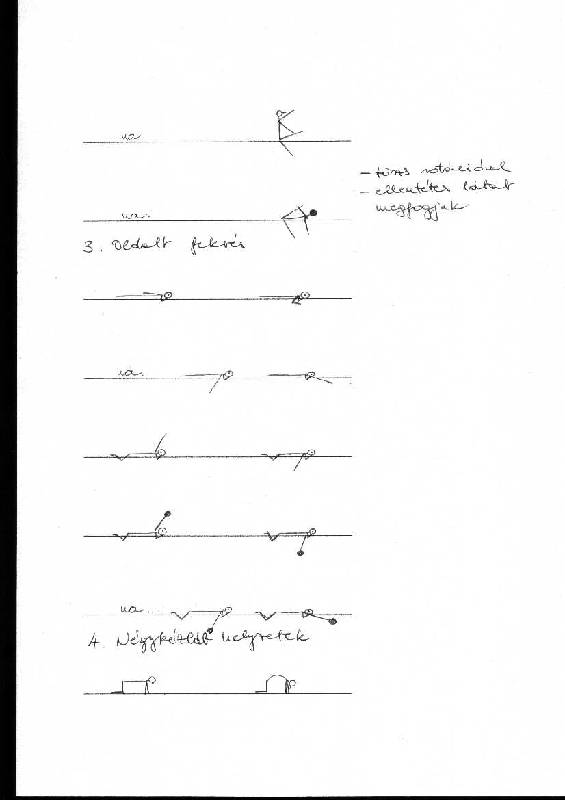 ua
– törzs rotációval
– ellentétes lábat
megfogjuk
ua.
3. Oldalt fekvés
ua.
ua.
4. Négykézláb helyzetek